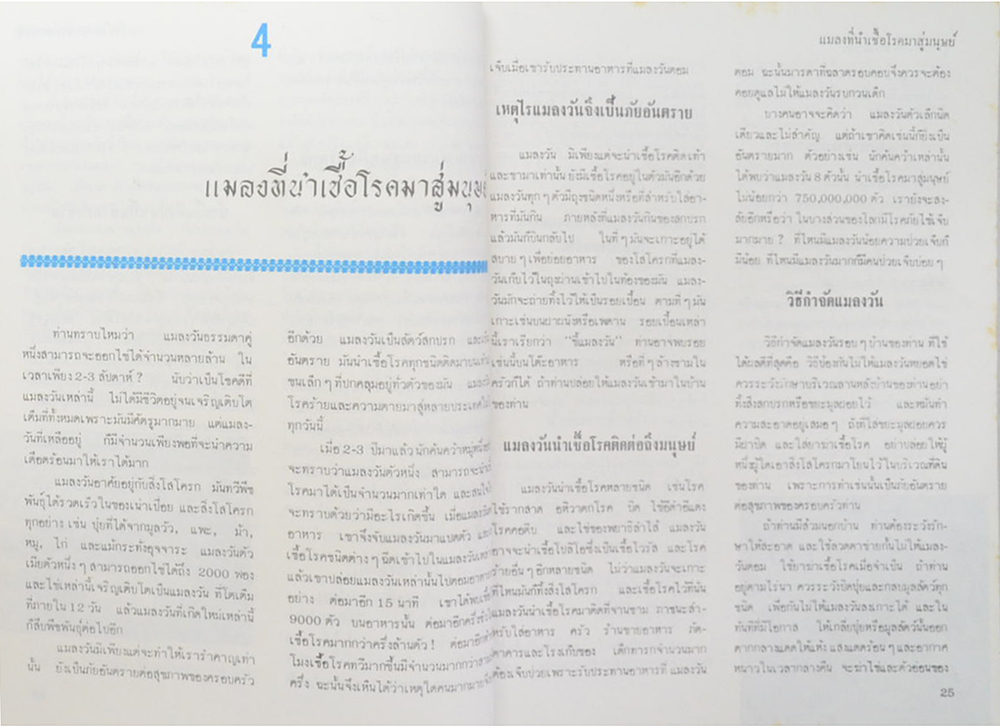 4
แมลงที่นำเชื้อโรคมาสู่มนุษย์
ท่านทราบไหมว่า แมลงวันธรรมดาคู่
หนึ่งสามารถจะออกไข่ได้จำนวนหลายล้าน ใน
เวลาเพียง 2-3 สัปดาห์ ? นับว่าเป็นโชคดีที่
แมลงวันเหล่านี้ ไม่ได้มีชีวิตอยู่จนเจริญเติบโต
เต็มที่ทั้งหมดเพราะมันมีศัตรูมากมาย แต่แมลง-
วันที่เหลืออยู่ ก็มีจำนวนเพียงพอที่จะนำความ
เดือดร้อนมาให้เราได้มาก
แมลงวันอาศัยอยู่กับสิ่งโสโครก มันทวีพืช
พันธุ์ได้รวดเร็วในของเน่าเปื่อย และสิ่งโสโครก
ทุกอย่าง เช่น ปุ๋ยที่ได้จากมูลวัว, แพะ, ม้า,
หมู, ไก่ และแม้กระทั่งอุจจาระ แมลงวันตัว
เมียตัวหนึ่ง ๆ สามารถออกไข่ได้ถึง 2000 ฟอง
และไข่เหล่านี้จะเจริญเติบโตเป็นแมลงวัน ที่โตเต็ม
ที่ภายใน 12 วัน แล้วแมลงวันที่เกิดใหม่เหล่านี้
ก็สืบพืชพันธุ์ต่อไปอีก
แมลงวันมิเพียงแต่จะทำให้เรารำคาญเท่า
นั้น ยังเป็นภัยอันตรายต่อสุขภาพของครอบครัว
อีกด้วย แมลงวันเป็นสัตว์สกปรก และ
อันตราย มันนำเชื้อโรคทุกชนิดติดมาบน
ขนเล็ก ๆ ที่ปกคลุมอยู่ทั่วตัวของมัน
โรคร้ายและความตายมาสู่หลายประเทศ
ทุกวันนี้
เมื่อ 2-3 ปีมาแล้ว นักค้นคว้าหมู่หนึ่ง
จะทราบว่าแมลงวันตัวหนึ่ง สามารถจะนำ
โรคมาได้เป็นจำนวนมากเท่าใด และสนใจ
จะทราบด้วยว่ามีอะไรเกิดขึ้น เมื่อแมลงวัน
อาหาร เขาจึงจับแมลงวันมาแปดตัว
เชื้อโรคชนิดต่าง ๆ ฉีดเข้าไปในแมลงวัน
แล้วเขาปล่อยแมลงวันเหล่านั้นไปตอมอาหาร
อย่าง ต่อมาอีก 15 นาที เขาได้พบ
9000 ตัว บนอาหารนั้น ต่อมาอีกครึ่งชั่ว
เชื้อโรคมากกว่าครึ่งล้านตัว ! ต่อมาอีก
โมงเชื้อโรคทวีมากขึ้นมีจำนวนมากกว่า
ครึ่ง ฉะนั้นจึงเห็นได้ว่าเหตุใดคนมากมาย
เจ็บเมื่อเขารับประทานอาหารที่แมลงวันตอม
เหตุไรแมลงวันจึงเป็นภัยอันตราย
แมลงวัน มิเพียงแต่จะนำเชื้อโรคติดเท้า
และขามาเท่านั้น ยังมีเชื้อโรคอยู่ในตัวมันอีกด้วย
แมลงวันทุก ๆ ตัวมีถุงชนิดหนึ่งหรือที่สำหรับใส่อา-
หารที่มันกิน ภายหลังที่แมลงวันกินของสกปรก
แล้วมันก็บินกลับไป ในที่ ๆ มันจะเกาะอยู่ได้
สบาย ๆ เพื่อย่อยอาหาร ของโสโครกที่แมลง-
วันเก็บไว้ในถุงผ่านเข้าไปในท้องของมัน แมลง-
วันมักจะถ่ายทิ้งไว้ให้เป็นรอยเปื้อน ตามที่ ๆ มัน
เกาะเช่นบนฝาผนังหรือเพดาน รอยเปื้อนเหล่า
นี้เราเรียกว่า "ขี้แมลงวัน" ท่านอาจพบรอย
เช่นนี้บนโต๊ะอาหาร หรือที่ ๆ ล้างชามใน
ครัวก็ได้ ถ้าท่านปล่อยให้แมลงวันเข้ามาในบ้าน
ของท่าน
แมลงวันนำเชื้อโรคติดต่อถึงมนุษย์
แมลงวันนำเชื้อโรคหลายชนิด เช่นโรค
ไข้รากสาด อหิวาตกโรค บิด ไข้อีดำอีแดง
โรคคอตีบ และไข่ของพยาธิลำไส้ แมลงวัน
อาจจะนำเชื้อโปลิโอซึ่งเป็นเชื้อไวรัส และโรค
ร้ายอื่น ๆ อีกหลายชนิด ไม่ว่าแมลงวันจะเกาะ
ที่ไหนมันก็ทิ้งสิ่งโสโครก และเชื้อโรคไว้ที่นั่น
แมลงวันนำเชื้อโรคมาติดที่จานชาม ภาชนะสำ-
หรับใส่อาหาร ครัว ร้านขายอาหาร ภัต-
ตาคารและโรงเก็บของ เด็กทารกจำนวนมาก
ต้องเจ็บป่วยเพราะรับประทานอาหารที่ แมลงวัน
แมลงที่นำเชื้อโรคมาสู่มนุษย์
ตอม ฉะนั้นมารดาที่ฉลาดรอบคอบจึงควรจะต้อง
คอยดูแลไม่ให้แมลงวันรบกวนเด็ก
บางคนอาจจะคิดว่า แมลงวันตัวเล็กนิด
เดียวและไม่สำคัญ แต่ถ้าเขาคิดเช่นนี้ก็ยิ่งเป็น
อันตรายมาก ตัวอย่างเช่น นักค้นคว้าเหล่านั้น
ได้พบว่าแมลงวัน 8 ตัวนั้น นำเชื้อโรคมาสู่มนุษย์
ไม่น้อยกว่า 750,000,000 ตัว เรายังจะสง-
สัยอีกหรือว่า ในบางส่วนของโลกมีโรคภัยไข้เจ็บ
มากมาย ? ที่ไหนมีแมลงวันน้อยความป่วยเจ็บก็
มีน้อย ที่ไหนมีแมลงวันมากก็มีคนป่วยเจ็บบ่อย ๆ
วิธีกำจัดแมลงวัน
วิธีกำจัดแมลงวันรอบ ๆ บ้านของท่าน ที่ใช้
ได้ผลดีที่สุดคือ วิธีป้องกันไม่ให้แมลงวันหยอดไข่
ควรระวังรักษาบริเวณลานหลังบ้านของท่านอย่า
ทิ้งสิ่งสกปรกหรือขยะมูลฝอยไว้ และหมั่นทำ
ความสะอาดอยู่เสมอ ๆ ถังที่ใส่ขยะมูลฝอยควร
มีฝาปิด และใส่ยาฆ่าเชื้อโรค อย่าปล่อยให้ผู้
หนึ่งผู้ใดเอาสิ่งโสโครกมาโยนไว้ในบริเวณที่ดิน
ของท่าน เพราะการทำเช่นนั้นเป็นภัยอันตราย
ต่อสุขภาพของครอบครัวท่าน
ถ้าท่านมีส้วมนอกบ้าน ท่านต้องระวังรัก-
ษาให้สะอาด และใช้ลวดตาข่ายกั้นไม่ให้แมลง-
วันตอม ใช้ยาฆ่าเชื้อโรคเมื่อจำเป็น ถ้าท่าน
อยู่ตามไร่นา ควรระวังปิดปุ๋ยและกลบมูลสัตว์ทุก
ชนิด เพื่อกันไม่ให้แมลงวันลงเกาะได้ และใน
ทันทีที่มีโอกาส ให้เกลี่ยปุ๋ยหรือมูลสัตว์นั้นออก
ตากกลางแดดให้แห้ง แสงแดดร้อน ๆ และอากาศ
หนาวในเวลากลางคืน จะฆ่าไข่และตัวอ่อนของ
25